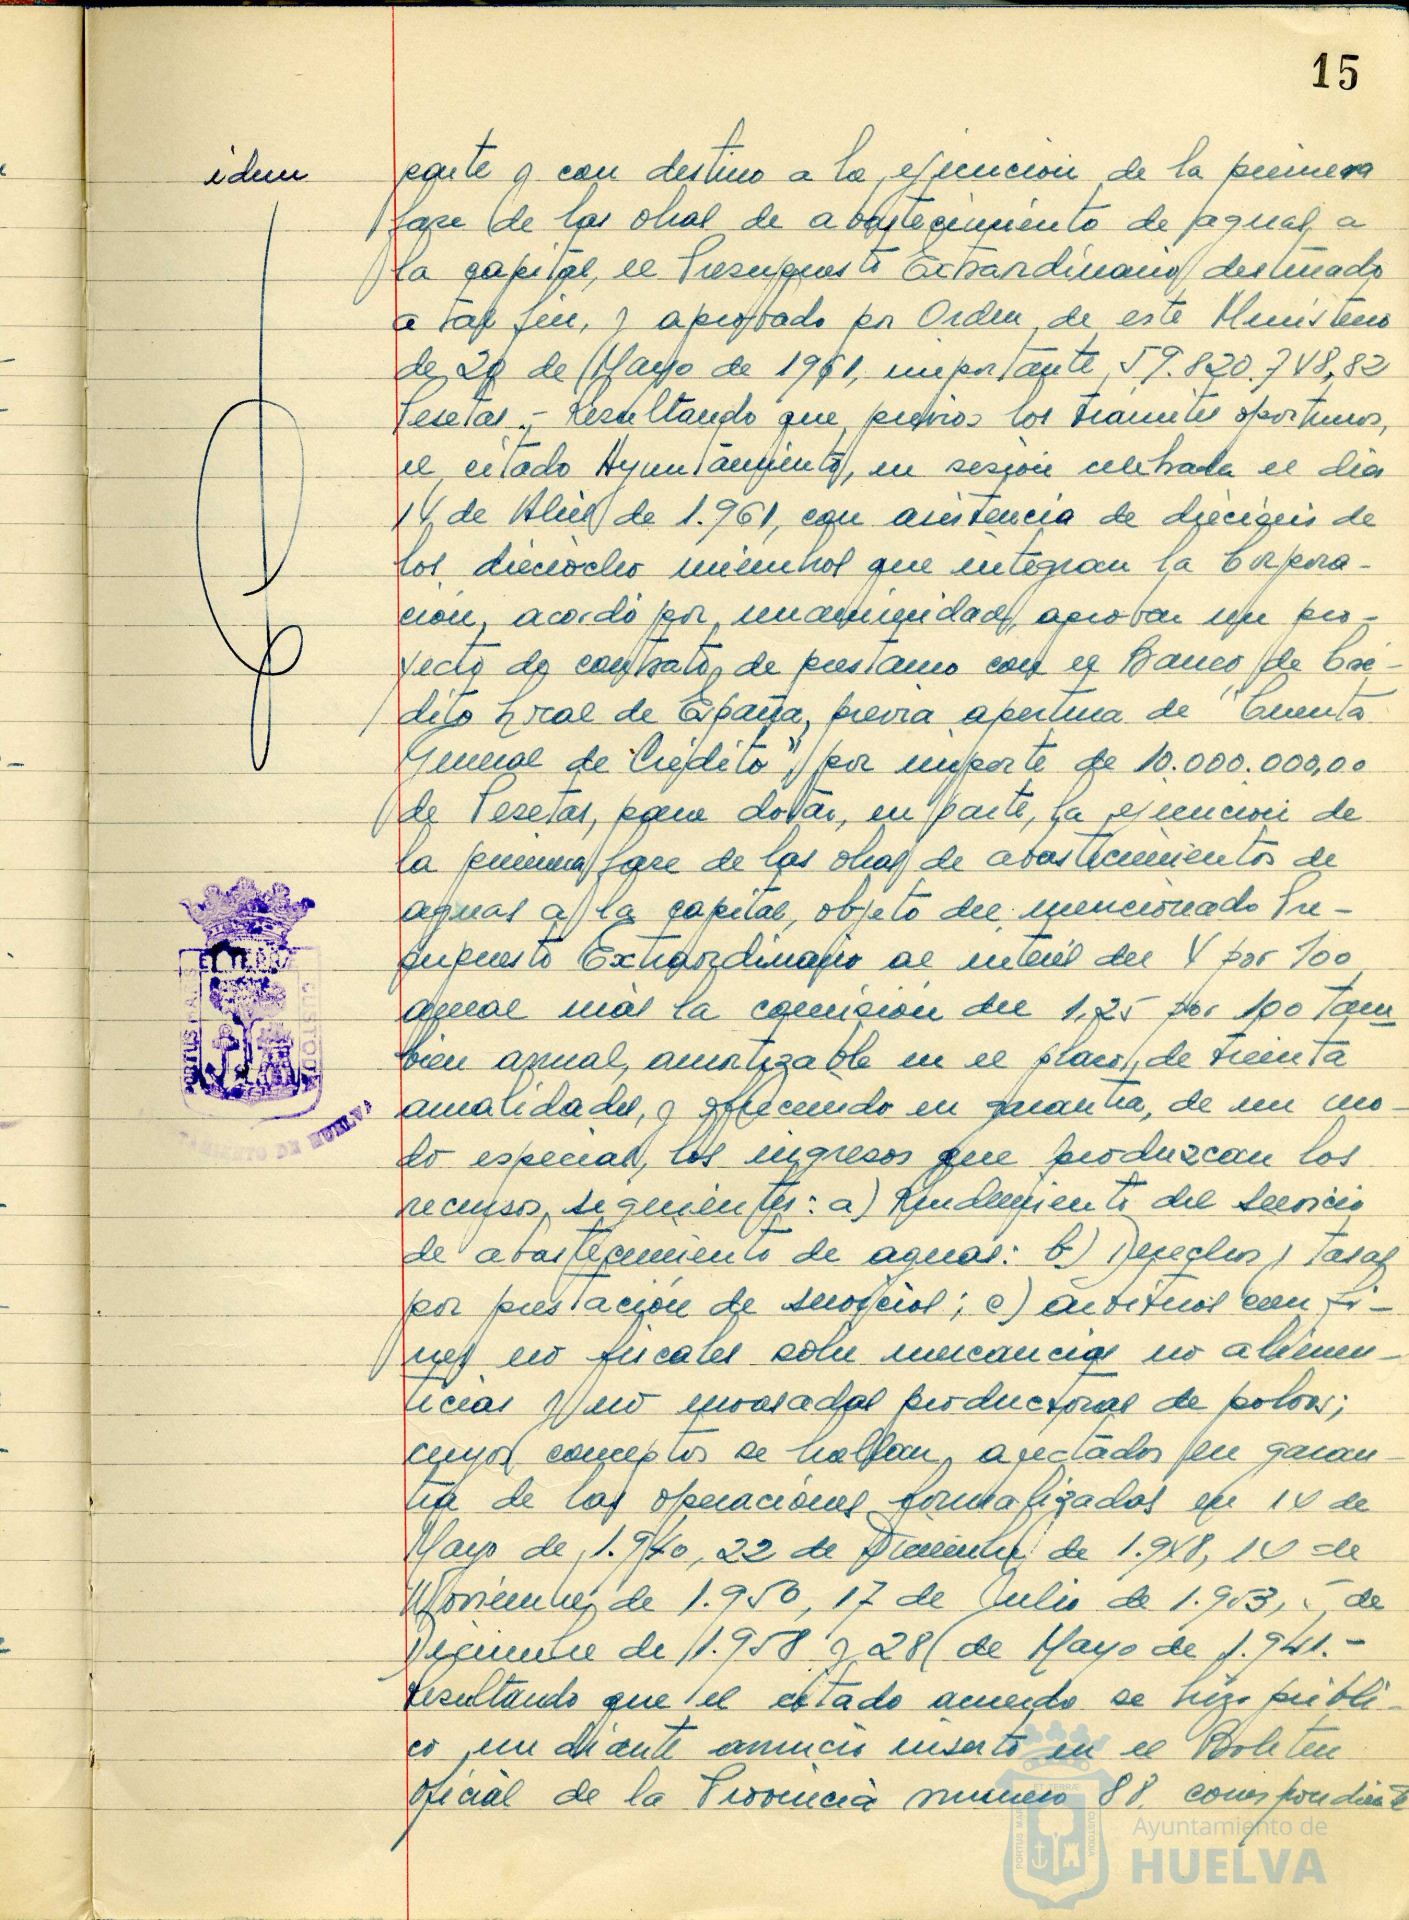 15
idem
parte y con destino a la ejecución de la primera
fase de las obras de abastecimiento de aguas a
la capital, el Presupuesto Extraordinario destinado
a tal fin, y aprobado por Orden de este Ministerio
de 20 de Mayo de 1961, importante 59.820.748,82
Pesetas.- Resultando que, previos los trámites oportunos,
el citado Ayuntamiento, en sesión celebrada el día
14 de Abril de 1.961, con asistencia de dieciseis de
los dieciocho miembros que integran la Corpora-
ción, acordó por unanimidad, aprobar un pro-
yecto de contrato de prestamo con el Banco de Cré-
dito Local de España, previa apertura de "Cuenta
General de Crédito", por importe de 10.000.000,00
de Pesetas, para dotar, en parte, la ejecución de
la primera fase de las obras de abastecimientos de
aguas a la capital, objeto del mencionado Pre-
supuesto Extraordinario al interés del 4 por 100
anual más la comisión del 1,25 por 100 tam
bien anual, amortizable en el plazo, de treinta
anualidades, y ofreciendo en garantía, de un mo-
do especial, los ingresos que produzcan los
recursos siguientes: a) Rendimiento del Servicio
de abastecimiento de aguas: b) Derechos y tasas
por prestación de servicios; c) arbitrios con fi-
nes no fiscales sobre mercancias no alimen-
ticias y no envasadas productoras de polvos;
cuyos conceptos se hallan afectados en garan-
tía de las operaciones formalizadas en 14 de
Mayo de 1.940, 22 de Diciembre de 1.948, 14 de
Noviembre de 1.950, 17 de Julio de 1.953, 5 de
Diciembre de 1.958 y 28 de Mayo de 1.941.-
Resultando que el citado acuerdo se hizo públi-
co mediante anuncio inserto en el Boletin
Oficial de la Provincia numero 88 correspondiente
PORTUS MARIS ET TERRAE CUSTODIA
TAMIENTO DE HUELVA
Ayuntamiento de
HUELVA